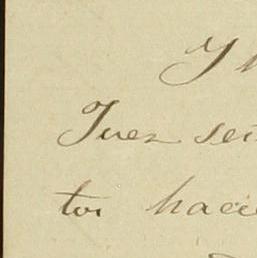 Y
Juez se
tos hacie